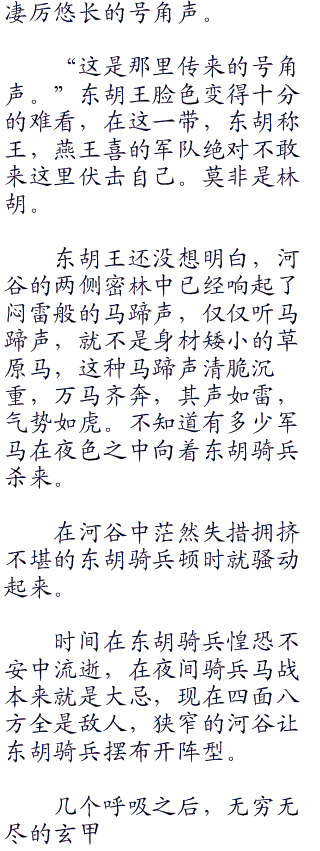 凄厉悠长的号角声。
“这是那里传来的号角
声。”东胡王脸色变得十分
的难看，在这一带，东胡称
王，燕王喜的军队绝对不敢
来这里伏击自己。莫非是林
胡。
东胡王还没想明白，河
谷的两侧密林中已经响起了
闷雷般的马蹄声，仅仅听马
蹄声，就不是身材矮小的草
原马，这种马蹄声清脆沉
重，万马齐奔，其声如雷，
气势如虎。不知道有多少军
马在夜色之中向着东胡骑兵
杀来。
在河谷中茫然失措拥挤
不堪的东胡骑兵顿时就骚动
起来。
时间在东胡骑兵惶恐不
安中流逝，在夜间骑兵马战
本来就是大忌，现在四面八
方全是敌人，狭窄的河谷让
东胡骑兵摆布开阵型。
几个呼吸之后，无穷无
尽的玄甲